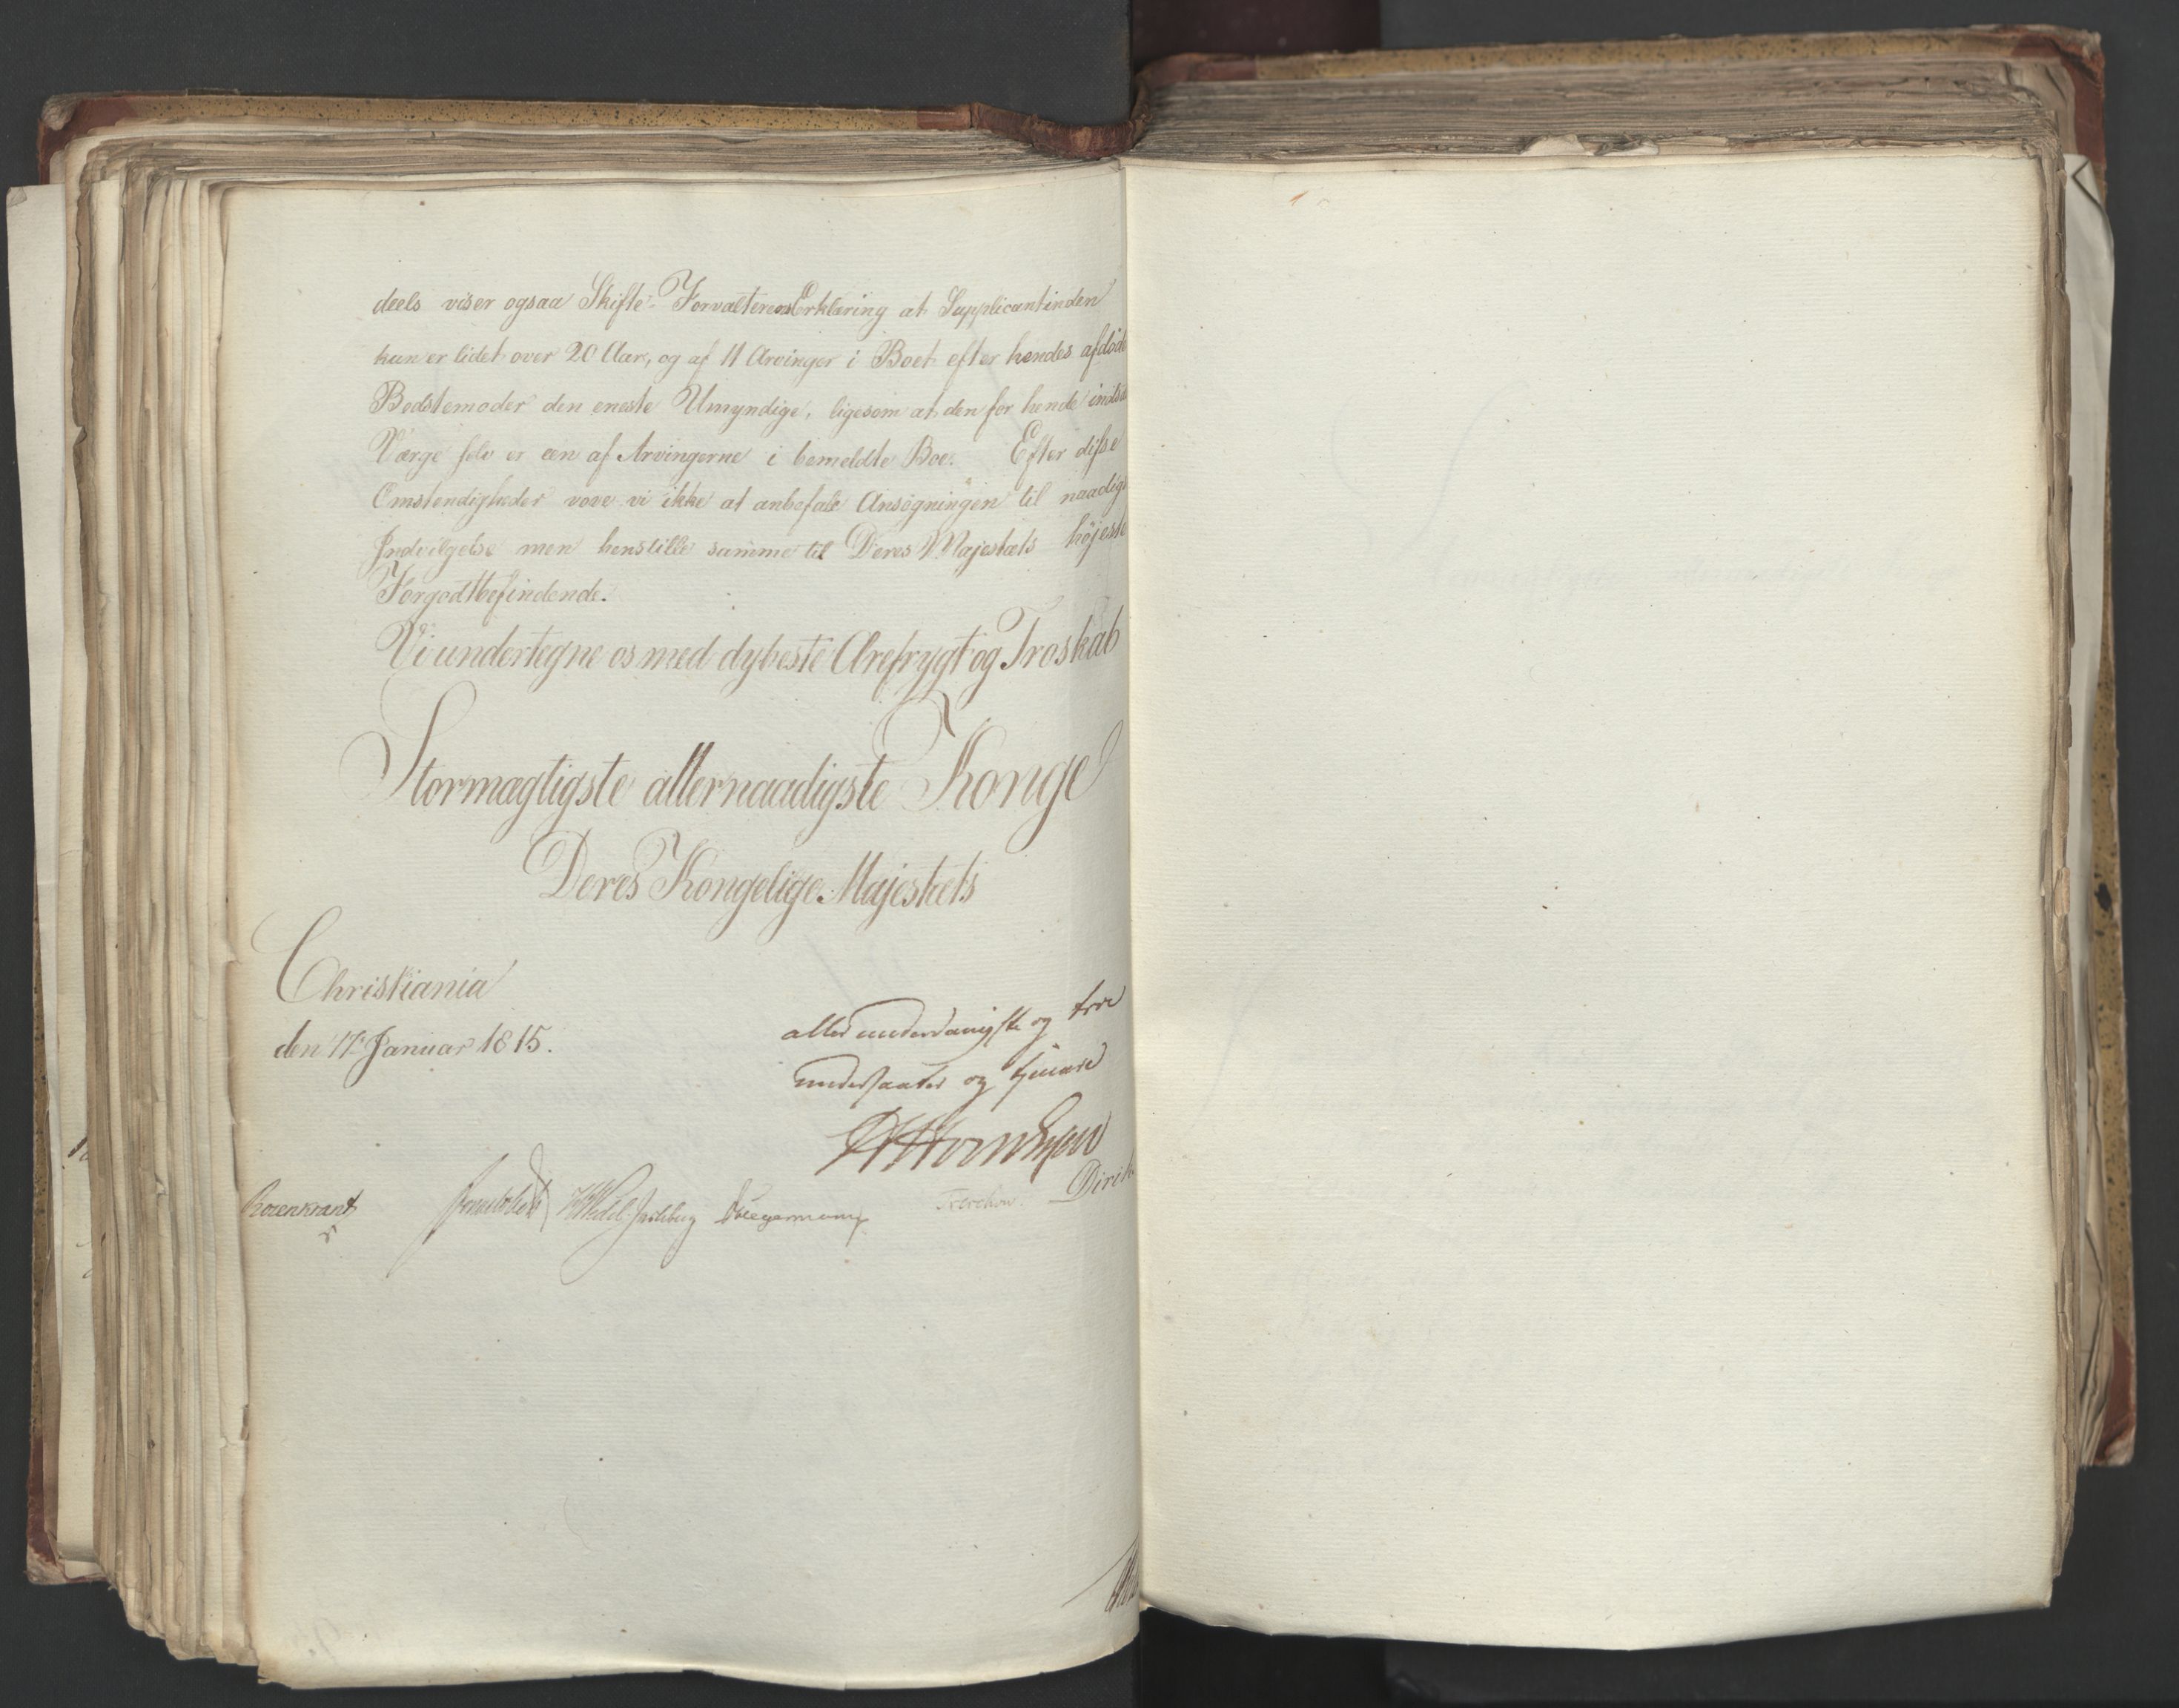 deels viser ogsaa Skifte-Forvalterens Erklæring at Supplicantinden
kun er lidet over 20 Aar, og af 11 Arvinger i Boet efter hendes afdöde
Bedstemoder den eneste Umyndige, ligesom at den for hende
Værge selv er een af Arvingerne i bemeldte Boe. Efter disse
Omstendigheder vove vi ikke at anbefale Ansögningen til naadigst
Indvilgelse men henstille samme til Deres Majestæts höjeste
Forgodtbefindende.
Vi undertegne os med dybeste Ærefrygt og Troskab
Stormægtigste allernaadigste Konge
Deres Kongelige Majestæts
Christiania
den 17 Januar 1815.
allerunderdanigste og troe
undersaatter og tjenere
Rosenkrantz
Sommerhielm HWedel Jarlsberg Diegermann Treschow Dirik